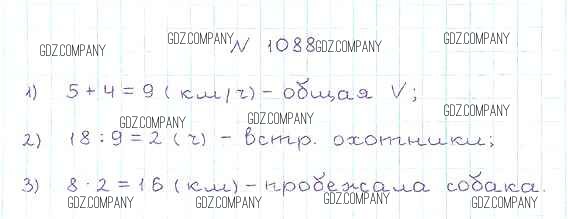 GDZ.COMPANY GDZ.COMPANY N 1088 GDZ.COMPANY GDZ.COMPANY
1) 5 + 4 = 9 (км/ч) - общая V;
GDZ.COMPANY GDZ.COMPANY GDZ.COMPANY
2) 18 : 9 = 2 (ч) - встр. охотники;
3) 8 · 2 = 16 (км) - пробежала собака.
GDZ.COMPANY GDZ.COMPANY GDZ.COMPANY GDZ.COMPANY